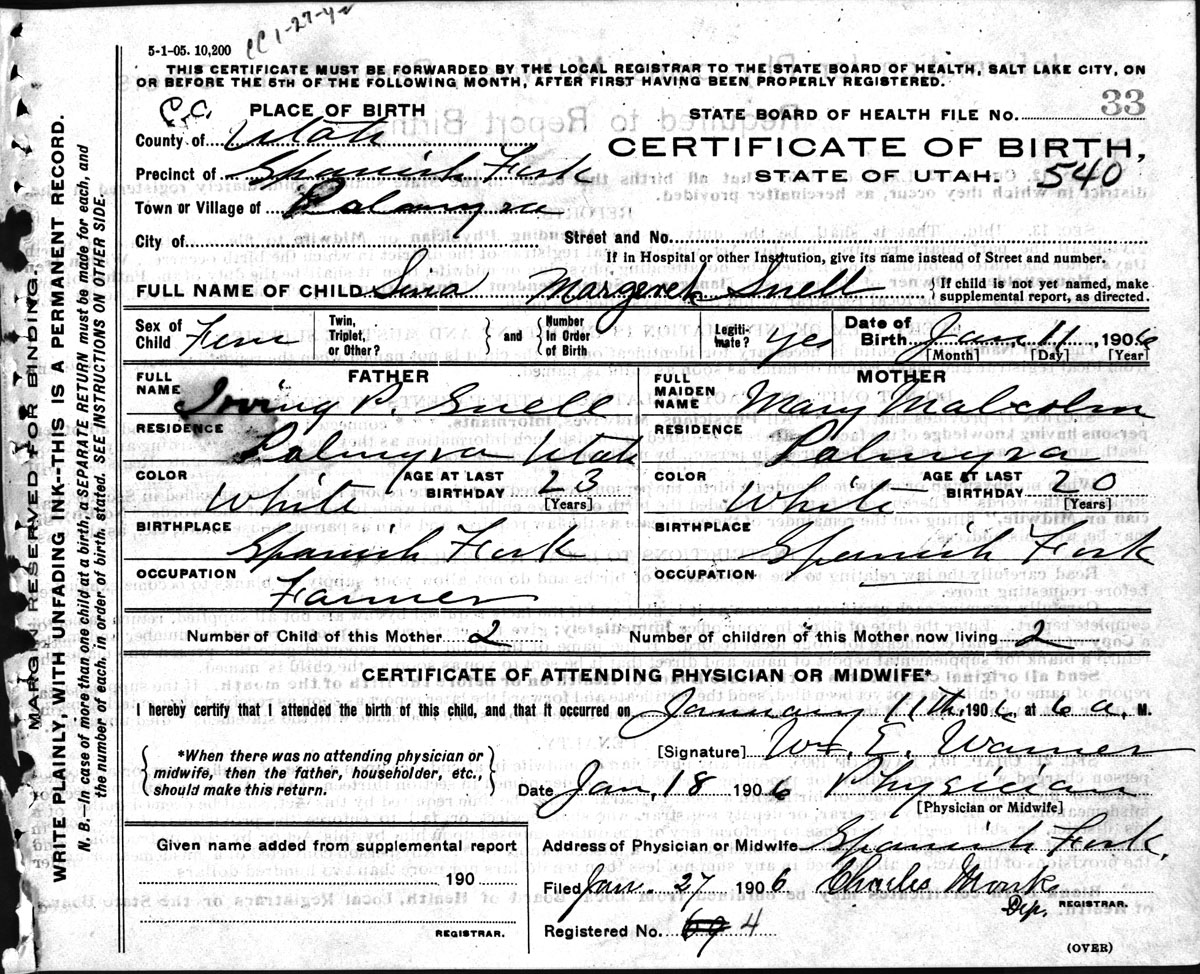 CC 1-27-42
5-1-05. 10,200
THIS CERTIFICATE MUST BE FORWARDED BY THE LOCAL REGISTRAR TO THE STATE BOARD OF HEALTH, SALT LAKE CITY, ON
OR BEFORE THE 5TH OF THE FOLLOWING MONTH, AFTER FIRST HAVING BEEN PROPERLY REGISTERED.
C.C. PLACE OF BIRTH
STATE BOARD OF HEALTH FILE NO. 33
County of Utah
CERTIFICATE OF BIRTH,
Precinct of Spanish Fork
STATE OF UTAH. 540
Town or Village of Palmyra
City of Street and No.
If in Hospital or other Institution, give its name instead of Street and number.
FULL NAME OF CHILD Margaret Snell { If child is not yet named, make supplemental report, as directed.
Sex of Child Fem Twin, Triplet, or Other? } and { Number In Order of Birth Legiti-mate? Yes Date of Birth Jan 11, 1906
[Month] [Day] [Year]
FATHER MOTHER
FULL NAME Irving P. Snell FULL MAIDEN NAME Mary Malcolm
RESIDENCE Palmyra Utah RESIDENCE Palmyra
COLOR White AGE AT LAST BIRTHDAY 23 [Years] COLOR White AGE AT LAST BIRTHDAY 20 [Years]
BIRTHPLACE Spanish Fork BIRTHPLACE Spanish Fork
OCCUPATION Farmer OCCUPATION
Number of Child of this Mother 2 Number of children of this Mother now living 2
CERTIFICATE OF ATTENDING PHYSICIAN OR MIDWIFE*
I hereby certify that I attended the birth of this child, and that it occurred on January 11th, 1906, at 6 a. M.
*When there was no attending physician or
midwife, then the father, householder, etc.,
should make this return.
[Signature] Wm. E. Warner
Date Jan. 18 1906 Physician
[Physician or Midwife]
Given name added from supplemental report
190
REGISTRAR.
Address of Physician or Midwife Spanish Fork.
Filed Jan. 27 1906 Charles Monk
Dep. REGISTRAR.
Registered No. 69 4
(OVER)
MARGIN RESERVED FOR BINDING.
WRITE PLAINLY, WITH UNFADING INK--THIS IS A PERMANENT RECORD.
N. B.--In case of more than one child at a birth, a SEPARATE RETURN must be made for each, and
the number of each, in order of birth, stated. SEE INSTRUCTIONS ON OTHER SIDE.